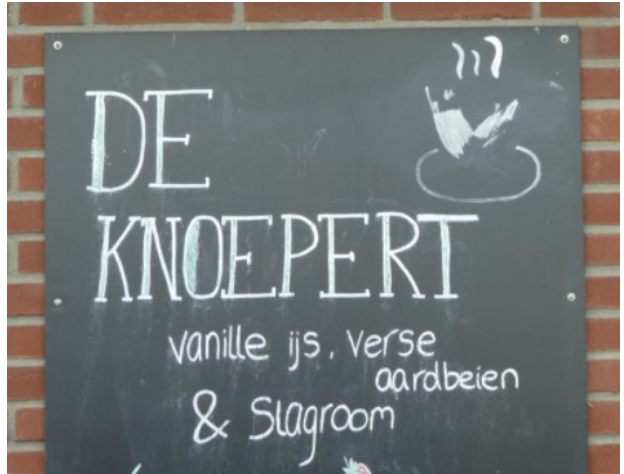 DE
KNOEPERT
vanille ijs, verse
aardbeien
& Slagroom